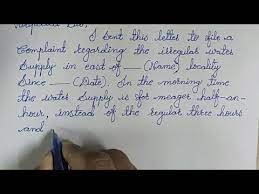 Respected Sir,
I sent this letter to file a
Complaint regarding the irregular water
Supply in east of ___ (Name) locality
Since ___ (Date). In the morning time
the water supply is for meager half-an-
hour, instead of the regular three hours
and